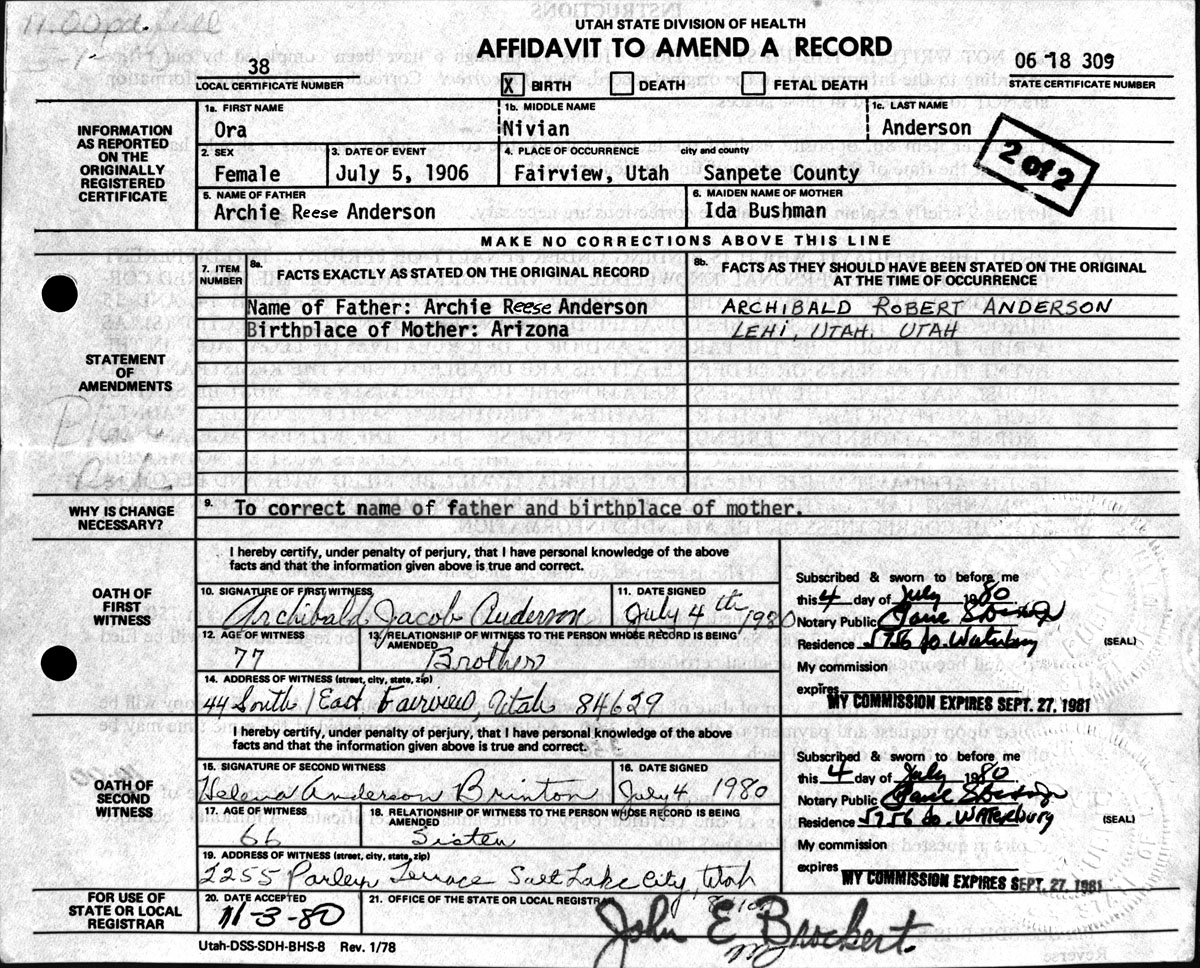 UTAH STATE DIVISION OF HEALTH
AFFIDAVIT TO AMEND A RECORD
38
LOCAL CERTIFICATE NUMBER
X BIRTH DEATH FETAL DEATH
06 18 309
STATE CERTIFICATE NUMBER
INFORMATION AS REPORTED ON THE ORIGINALLY REGISTERED CERTIFICATE
1a. FIRST NAME 1b. MIDDLE NAME 1c. LAST NAME
Ora Nivian Anderson
2 of 2
2. SEX 3. DATE OF EVENT 4. PLACE OF OCCURRENCE city and county
Female July 5, 1906 Fairview, Utah Sanpete County
5. NAME OF FATHER 6. MAIDEN NAME OF MOTHER
Archie Reese Anderson Ida Bushman
MAKE NO CORRECTIONS ABOVE THIS LINE
STATEMENT OF AMENDMENTS
7. ITEM NUMBER 8a. FACTS EXACTLY AS STATED ON THE ORIGINAL RECORD 8b. FACTS AS THEY SHOULD HAVE BEEN STATED ON THE ORIGINAL AT THE TIME OF OCCURRENCE
Name of Father: Archie Reese Anderson ARCHIBALD ROBERT ANDERSON
Birthplace of Mother: Arizona LEHI, UTAH, UTAH
WHY IS CHANGE NECESSARY?
9. To correct name of father and birthplace of mother.
OATH OF FIRST WITNESS
I hereby certify, under penalty of perjury, that I have personal knowledge of the above
facts and that the information given above is true and correct.
10. SIGNATURE OF FIRST WITNESS 11. DATE SIGNED
Archibald Jacob Anderson July 4th 1980
12. AGE OF WITNESS 13. RELATIONSHIP OF WITNESS TO THE PERSON WHOSE RECORD IS BEING AMENDED
77 Brother
14. ADDRESS OF WITNESS (street, city, state, zip)
44 South 1 East Fairview, Utah 84629
Subscribed & sworn to before me
this 4 day of July 1980
Notary Public
Residence 5756 So. Waterbury
(SEAL)
My commission
expires
MY COMMISSION EXPIRES SEPT. 27, 1981
OATH OF SECOND WITNESS
I hereby certify, under penalty of perjury, that I have personal knowledge of the above
facts and that the information given above is true and correct.
15. SIGNATURE OF SECOND WITNESS 16. DATE SIGNED
Helena Anderson Brinton July 4, 1980
17. AGE OF WITNESS 18. RELATIONSHIP OF WITNESS TO THE PERSON WHOSE RECORD IS BEING AMENDED
66 Sister
19. ADDRESS OF WITNESS (street, city, state, zip)
2255 Parleys Terrace Salt Lake City, Utah
Subscribed & sworn to before me
this 4 day of July 1980
Notary Public
Residence 5756 So. Waterbury
(SEAL)
My commission
expires
MY COMMISSION EXPIRES SEPT. 27, 1981
FOR USE OF STATE OR LOCAL REGISTRAR
20. DATE ACCEPTED 21. OFFICE OF THE STATE OR LOCAL REGISTRAR
11-3-80 John E Brockert
Utah-DSS-SDH-BHS-8 Rev. 1/78
Reverse